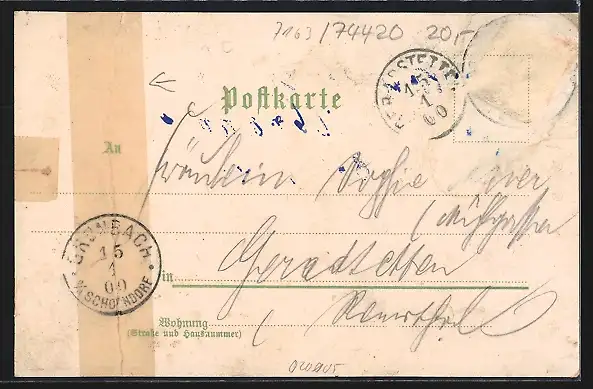 7163/74420 20,-
Postkarte
GERADSTETTEN
15
1
00
An
Fräulein Sophie
GRUNBACH
15
1
00
*SCHORNDORF
in Geradstetten
Remsthal
Wohnung
(Straße und Hausnummer)